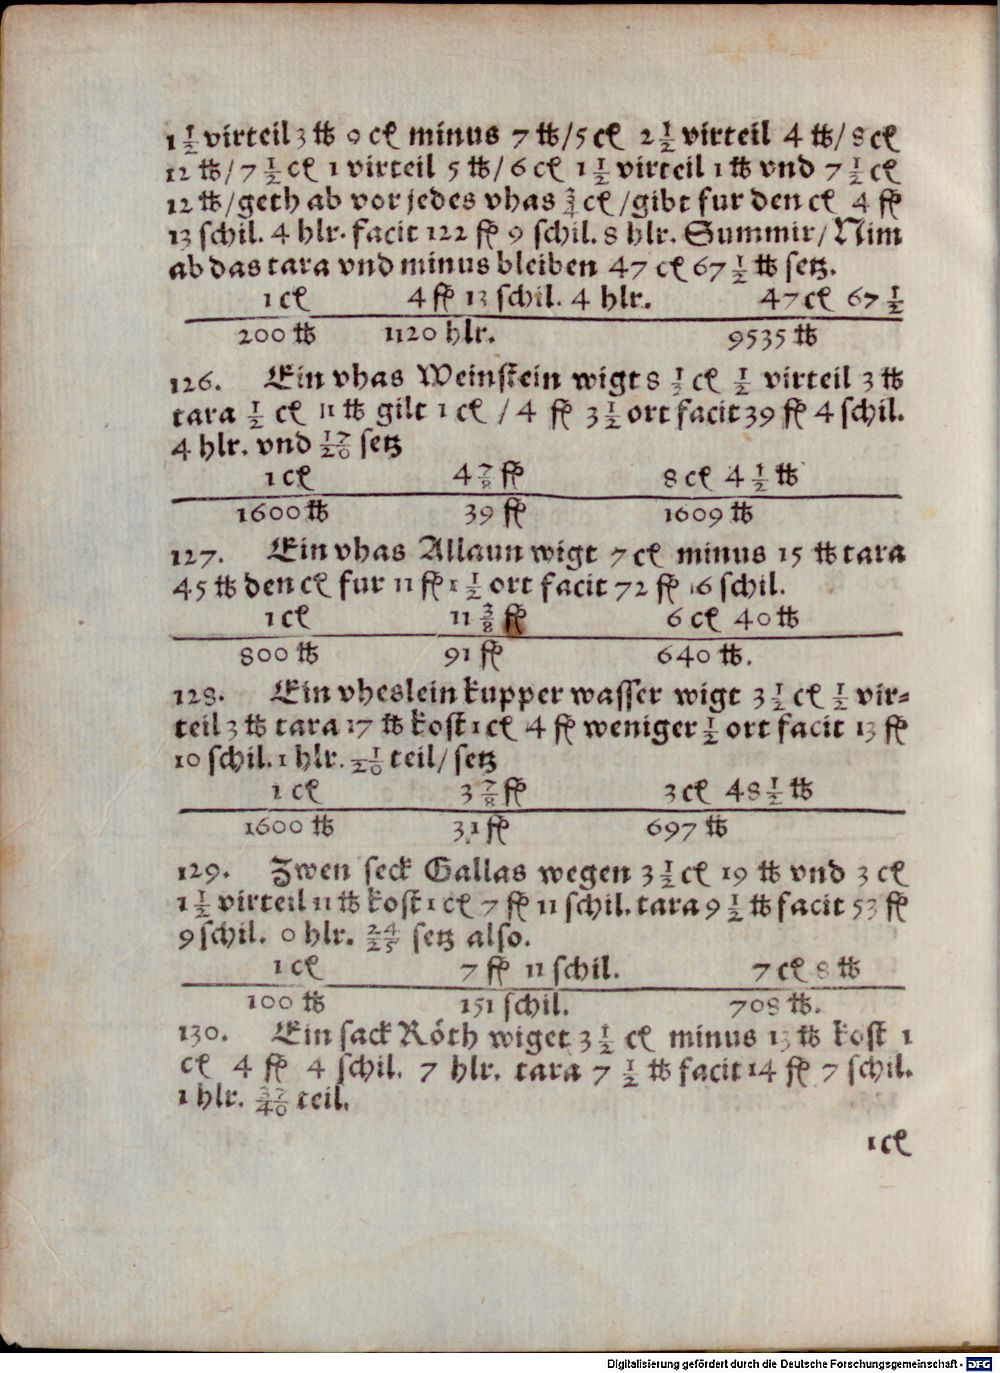 1 1/2 virteil 3 ℔ 9 ct minus 7 ℔/5 ct 2 1/2 virteil 4 ℔/8 ct
12 ℔/7 1/2 ct 1 virteil 5 ℔/6 ct 1 1/2 virteil 1 ℔ vnd 7 1/2 ct
12 ℔/geth ab vor jedes vhas 3/4 ct/gibt fur den ct 4 fl
13 schil. 4 hlr. facit 122 fl 9 schil. 8 hlr. Summir/Nim
ab das tara vnd minus bleiben 47 ct 67 1/2 ℔ setz.
1 ct 4 fl 13 schil. 4 hlr. 47 ct 67 1/2
200 ℔ 1120 hlr. 9535 ℔
126. Ein vhas Weinstein wigt 8 1/2 ct 1/2 virteil 3 ℔
tara 1/2 ct 11 ℔ gilt 1 ct / 4 fl 3 1/2 ort facit 39 fl 4 schil.
4 hlr. vnd 17/20 setz
1 ct 4 7/8 fl 8 ct 4 1/2 ℔
1600 ℔ 39 fl 1609 ℔
127. Ein vhas Allaun wigt 7 ct minus 15 ℔ tara
45 ℔ den ct fur 11 fl 1 1/2 ort facit 72 fl 16 schil.
1 ct 11 3/8 fl 6 ct 40 ℔
800 ℔ 91 fl 640 ℔.
128. Ein vheslein kupper wasser wigt 3 1/2 ct 1/2 vir⸗
teil 3 ℔ tara 17 ℔ kost 1 ct 4 fl weniger 1/2 ort facit 13 fl
10 schil. 1 hlr. 1/20 teil/ setz
1 ct 3 7/8 fl 3 ct 48 1/2 ℔
1600 ℔ 31 fl 697 ℔
129. Zwen seck Gallas wegen 3 1/2 ct 19 ℔ vnd 3 ct
1 1/2 virteil 11 ℔ kost 1 ct 7 fl 11 schil. tara 9 1/2 ℔ facit 53 fl
9 schil. 0 hlr. 24/25 setz also.
1 ct 7 fl 11 schil. 7 ct 8 ℔
100 ℔ 151 schil. 708 ℔.
130. Ein sack Röth wiget 3 1/2 ct minus 13 ℔ kost 1
ct 4 fl 4 schil. 7 hlr. tara 7 1/2 ℔ facit 14 fl 7 schil.
1 hlr. 37/40 teil.
1 ct
Digitalisierung gefördert durch die Deutsche Forschungsgemeinschaft - DFG